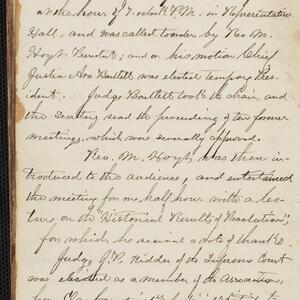 at the hour of 7 o'clock P.M. in Representative
Hall, and was called to order by Rev M.
Hoyt President; and on his motion Chief
Justice Asa Bartlett was elected temporary Pres-
ident. Judge Bartlett took the chair, and
the Secretary read the proceeding of two former
meetings, which were severally approved.
Rev. M. Hoyt, was then in-
troduced to the audience, and entertained
the meeting for one half hour with a lec-
ture on the "Historical Results of Revolution",
for which he received a vote of thanks.
Judge G.P. Kidder of the Supreme Court
was elected as a member of the Association,